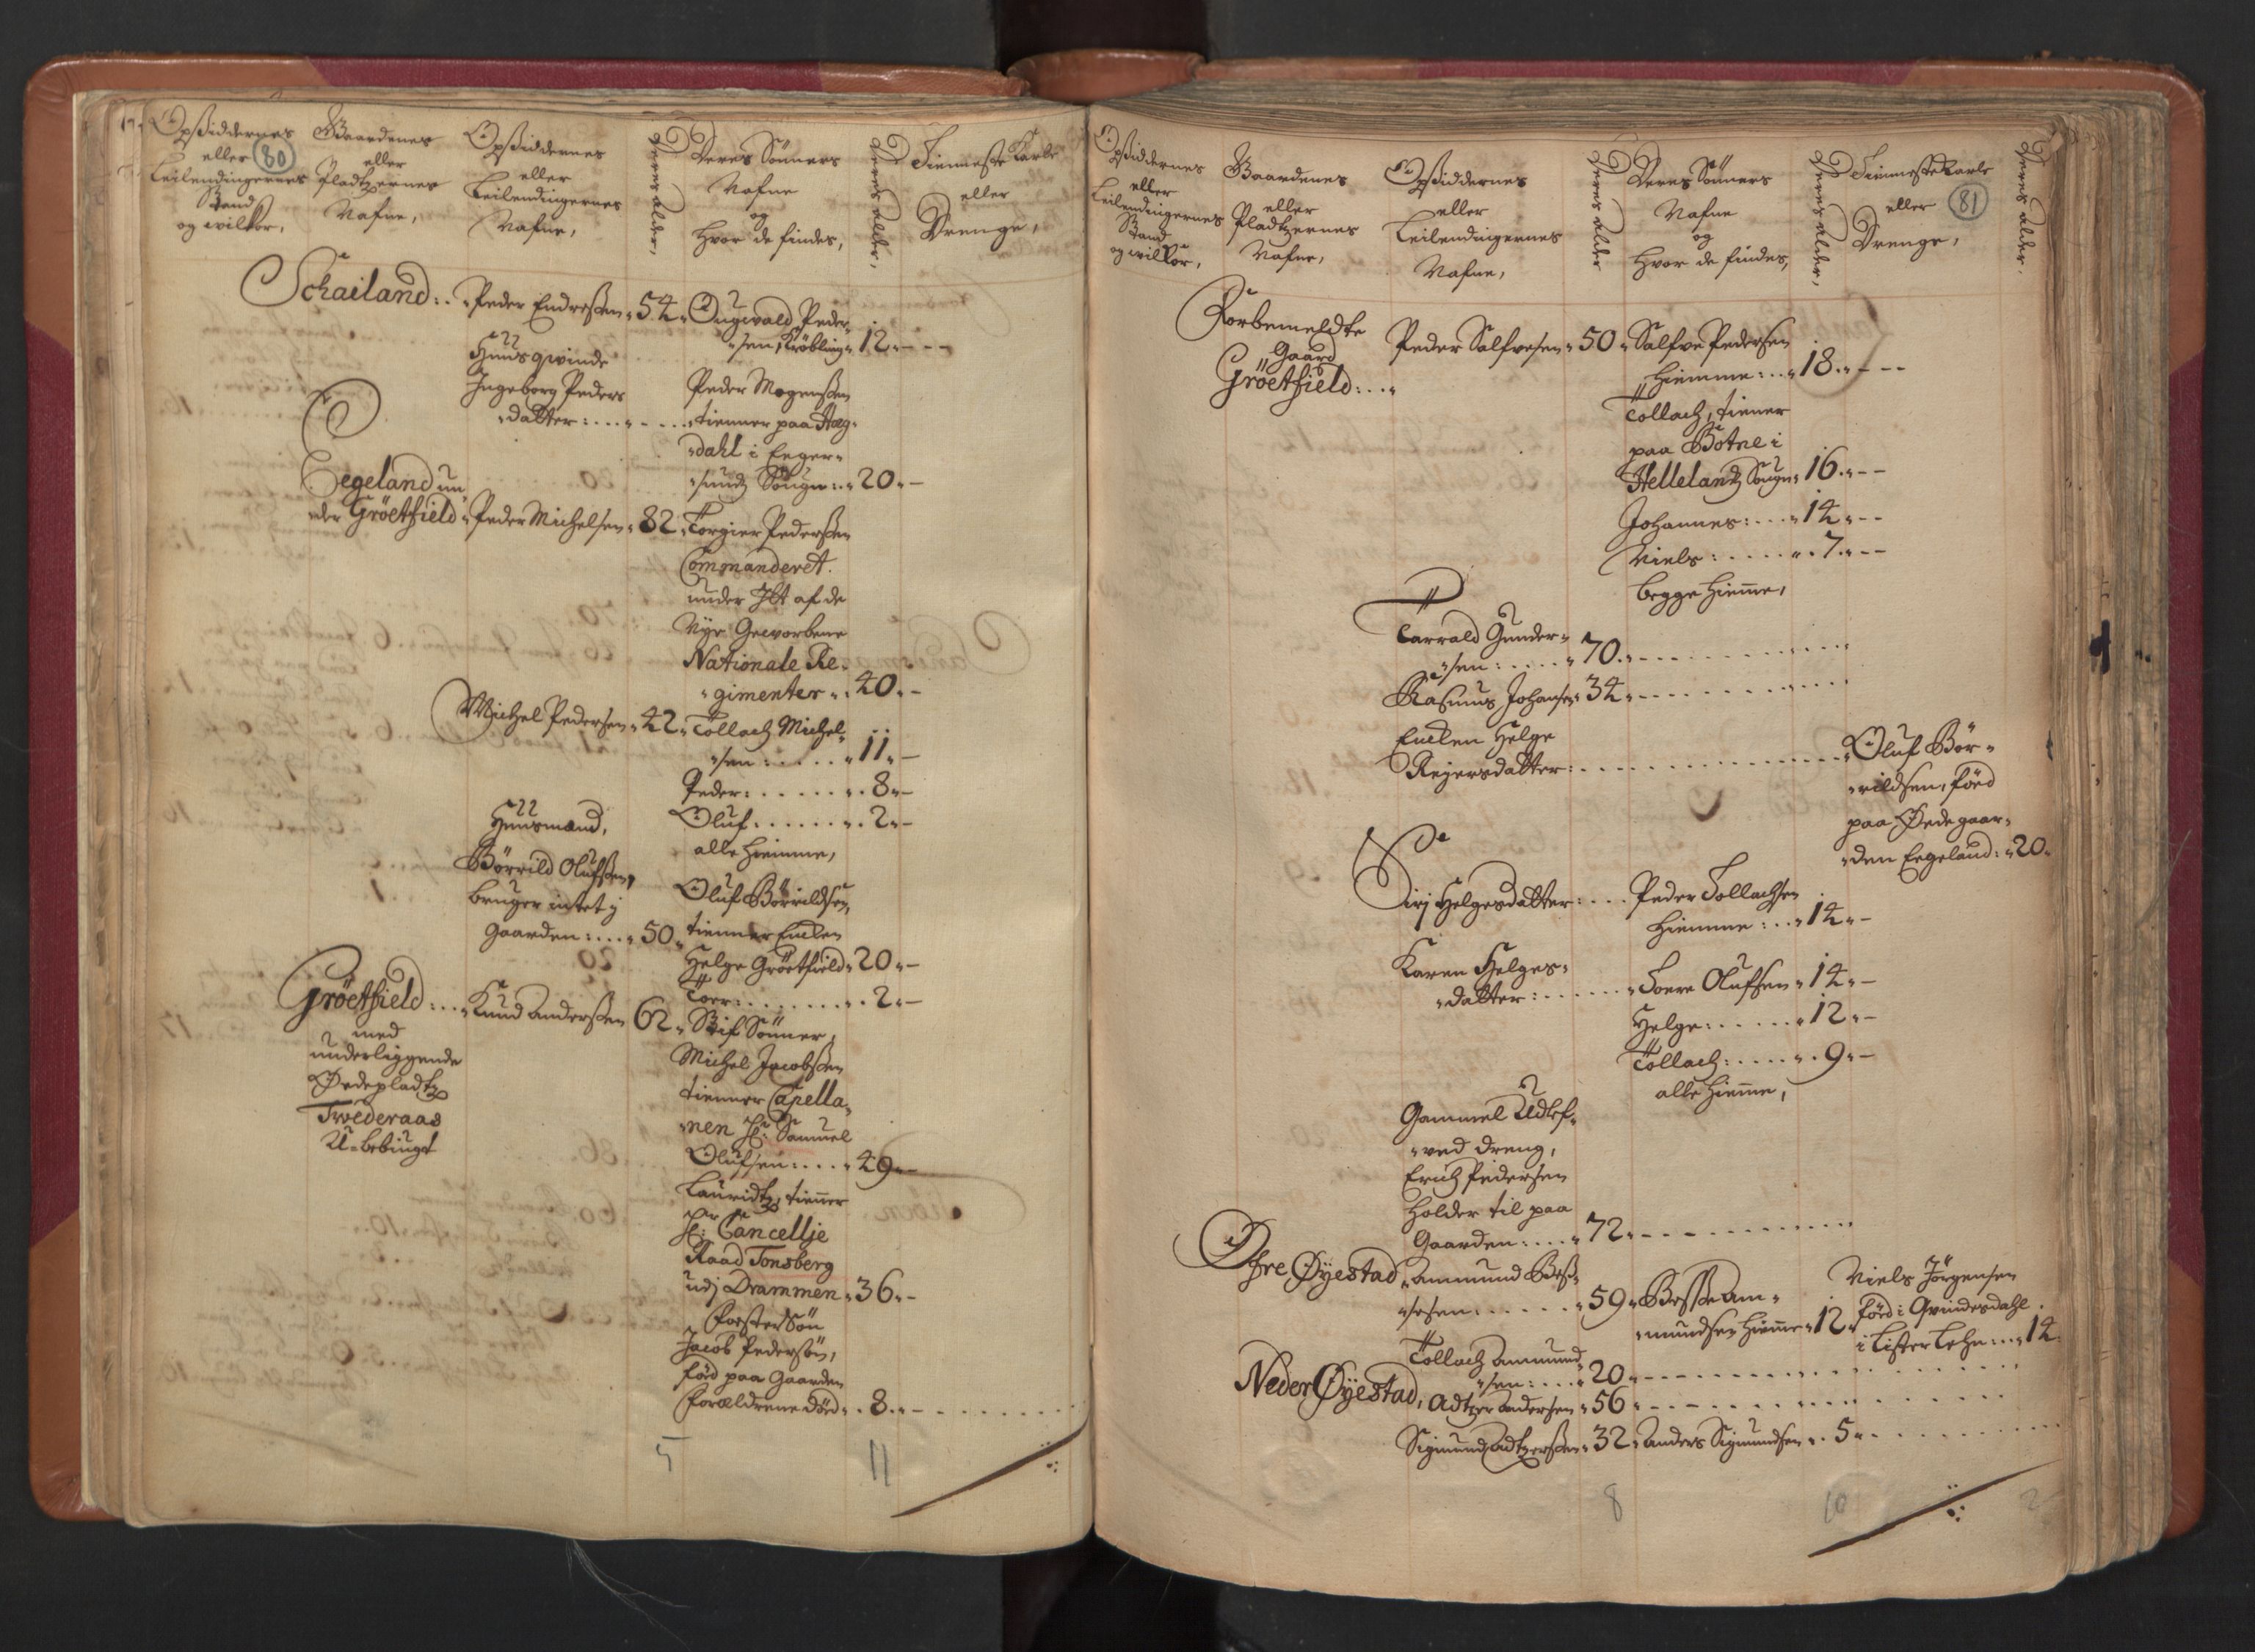 Opsiddernes
eller
Leilendingernes
Stand
og wilkor,
80
Gaardenes
eller
Pladtzernes
Nafne,
Opsiddernes
eller
Leilendingernes
Nafne,
Deres alder,
Deres Sønners
Nafne
og
hvor de findes,
Deres alder,
Tienneste Karle
eller
Drenge,
Schailand:. Peder Endressen 54 Ougwald Peder-
sen, Krøbling 12
Huusqvinde
Ingeborg Peders
datter: Peder Mogenssen
tienner paa Hæg-
dahl i Eeger-
sundz Sougn: 20
Eegeland un
der Gröetfield Peder Michelsen 82 Torgier Pederssen
Commanderet
under Jet af de
Nye Geworbene
Nationale Re-
gimenter 40
Michel Pedersen 42 Tollach Michel-
sen: 11
Peder: 8
Oluf: 2
alle hiemme,
Huusmand,
Börrild Olufsen,
bruger intet j
Gaarden: 50
Oluf Börrildsen,
tienner Enchen
Helge Gröetfield 20
Toer: 2
Gröetfield: Knud Anderssen 62 Stif Sönner,
med
underliggende
Ödepladtz
Twederaas
U-bebuugt
Michel Jacobssen
tienner Capella-
nen Hr: Samuel
Olufsen: 49
Lauridtz, tienner
Hr: Cancellje
Raad Tonsberg
udj Drammen 36
Foster Sön
Jacob Pedersön,
föd paa Gaarden
Forældrene döed 8
5 11
Opsiddernes
eller
Leilendingernes
Stand
og wilkor,
Gaardenes
eller
Pladtzernes
Nafne,
Opsiddernes
eller
Leilendingernes
Nafne,
Deres alder
Deres Sönners
Nafne
og
hvor de findes,
Deres alder,
Tienneste Karle
eller
Drenge,
81
Deres alder.
Forbemeldte
Gaard
Gröetfield:
Peder Salfvesen 50 Salfve Pedersen
hiemme: 18
Tollach, tiener
paa Botne i
Hellelandz Sougn 16
Johannes: 14
Niels: 7
begge hiemme,
Tarrald Gunder-
sen: 70
Rasmus Johansen 34
Enchen Helge
Rejersdatter:
Oluf Bör-
rildsen, föed
paa Ödegaar-
den Eegeland: 20
Sirj Helgesdatter: Peder Tollachsen
hiemme: 14
Karen Helges-
datter: Toere Olufsen 14
Helge: 12
Tollach: 9
alle hiemme,
Gammel Udlef-
ved dreng,
Erich Pedersen
holder til paa
Gaarden: 72
Öfre Öyestad Ammund Bess-
sesen: 59 Besse Am-
mundsen hiemme 12
Niels Jörgensen
föd i Qvindesdahl
i Lister Lehn: 14
Tollach Ammund-
sen: 20
Neder Öyestad, Adtzer Andersen 56
Sigmund Adtzerssen 32 Anders Sigmundsen 5
8 10 2